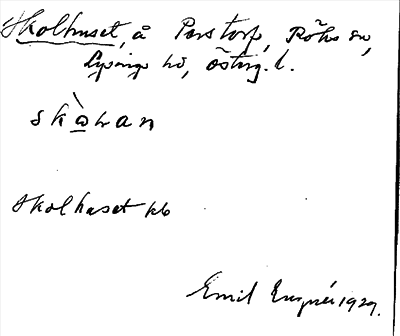 Skolhuset, å Porstorp, Röks sn,
Lysings hd, Östrg. l.
skòlan
Skolhuset kb
Emil 1929.